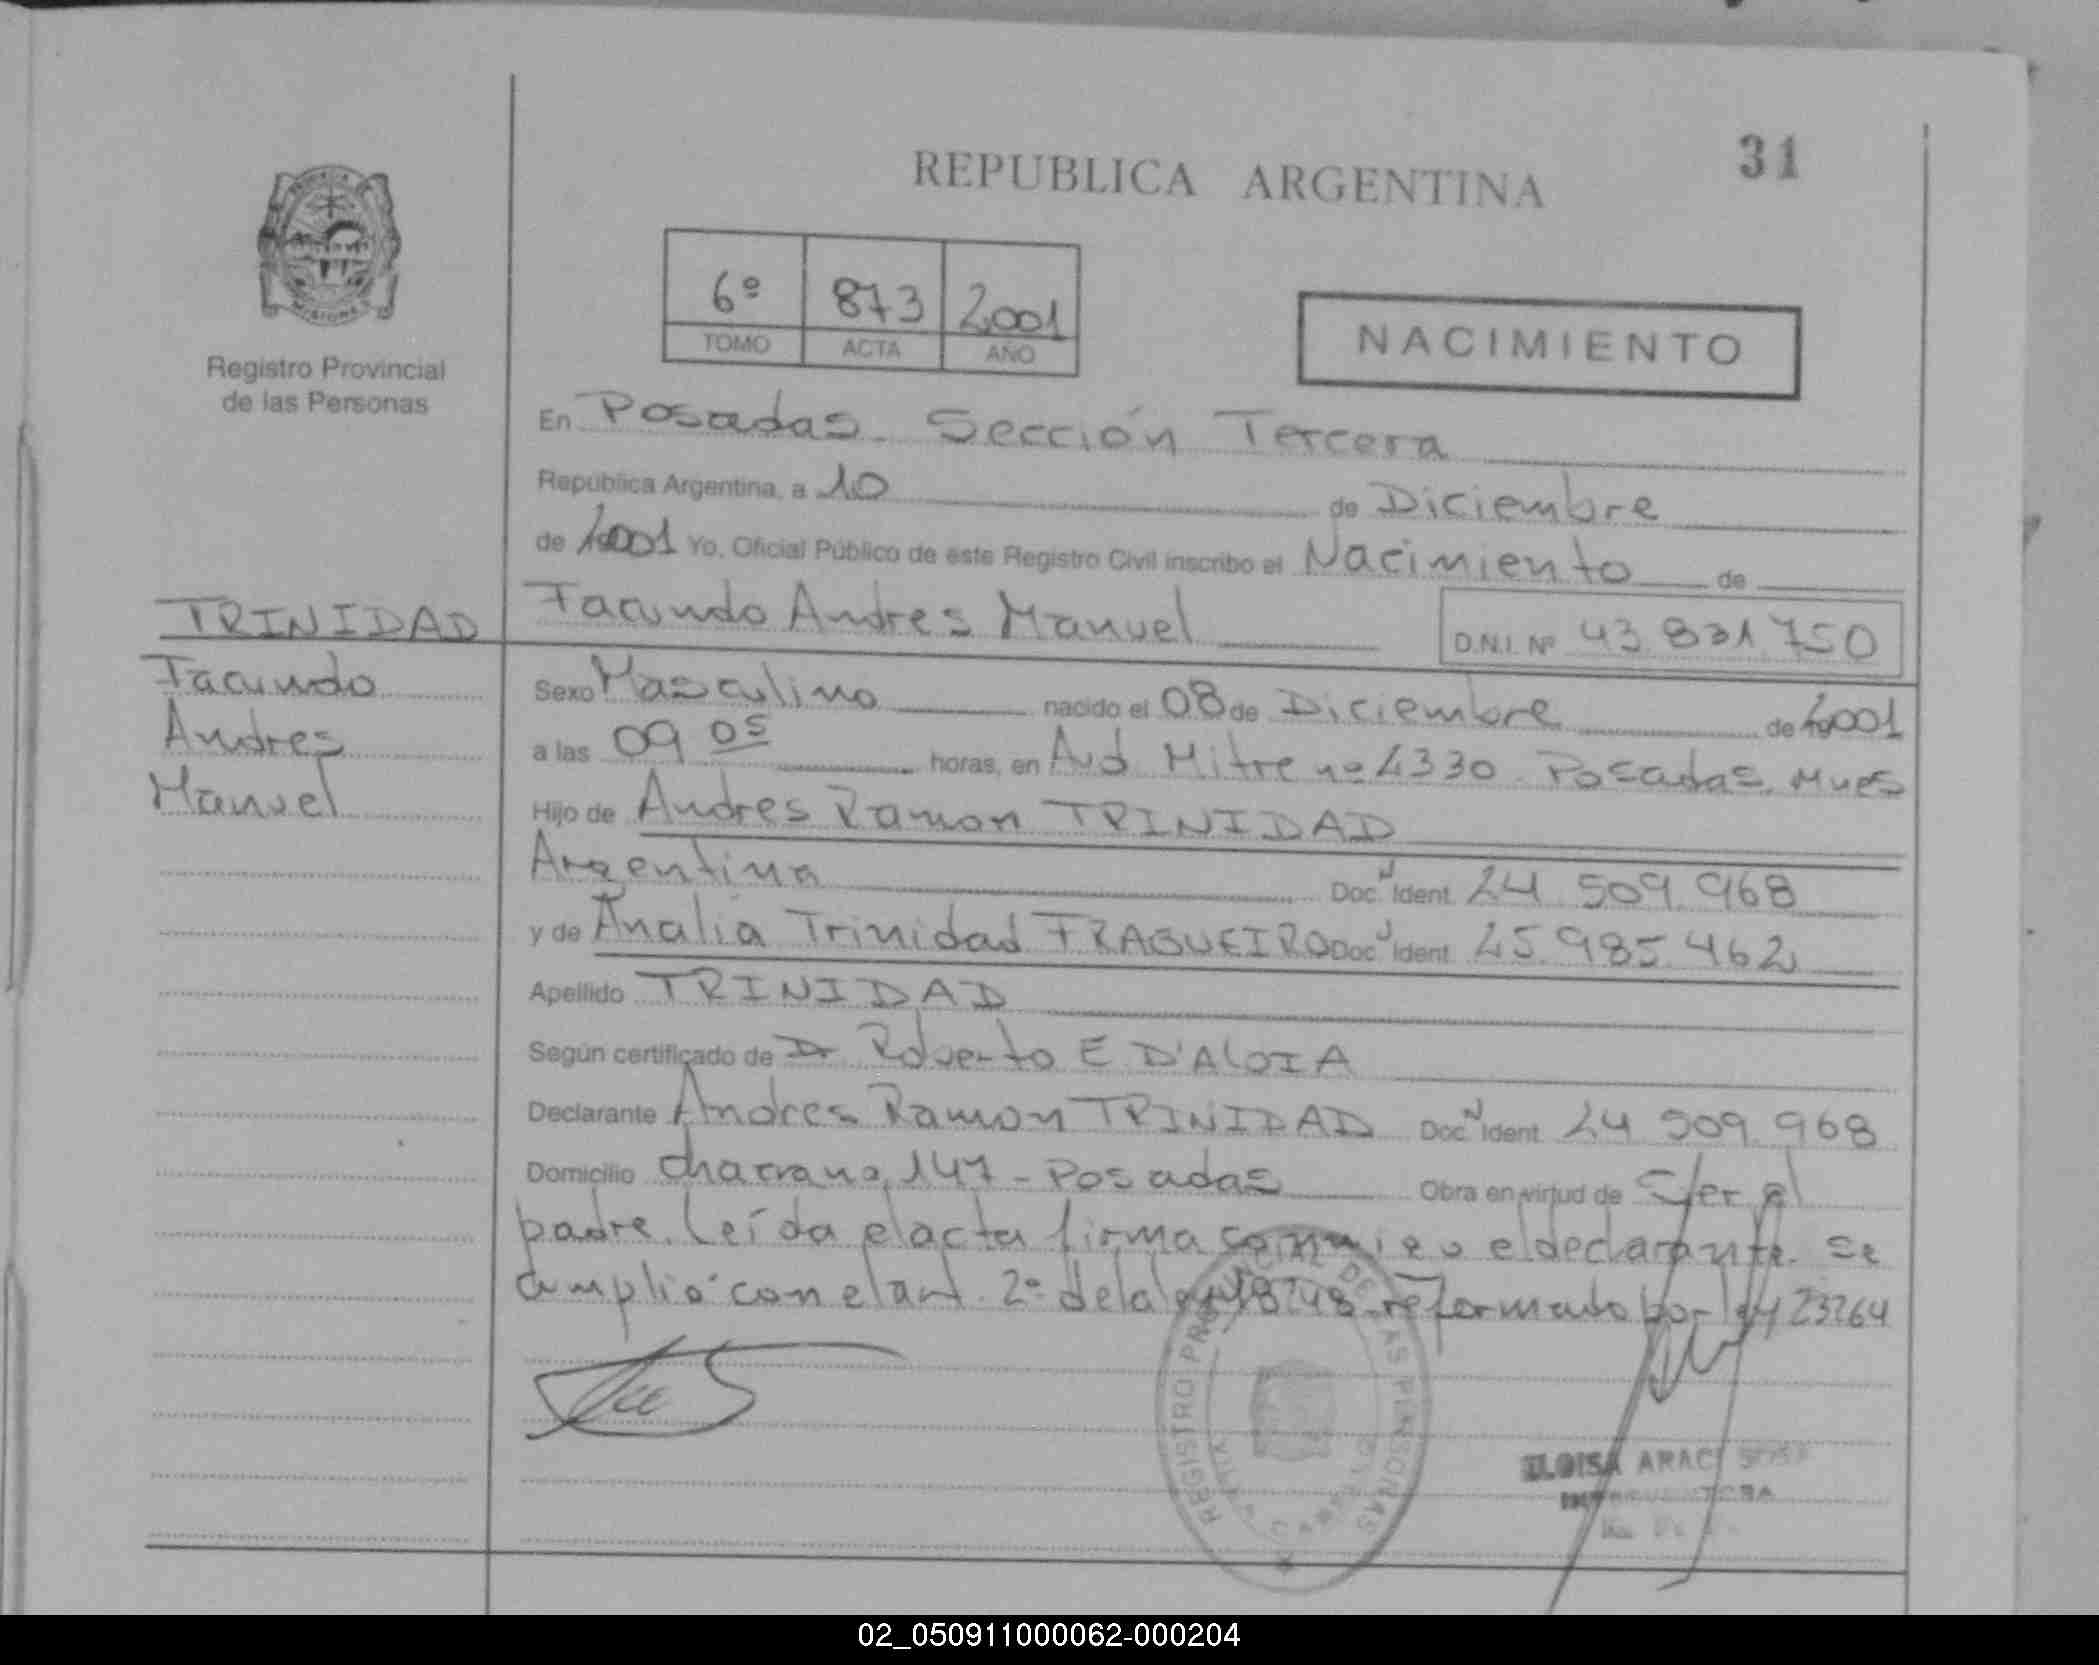 31
REPUBLICA ARGENTINA
6º 873 2001
TOMO ACTA AÑO
NACIMIENTO
Registro Provincial
de las Personas
En Posadas. Sección Tercera
República Argentina, a 10 de Diciembre
de 2001 Yo, Oficial Público de este Registro Civil inscribo el Nacimiento de
TRINIDAD
Facundo
Andres
Manuel
Facundo Andres Manuel D.N.I. Nº 43.831.750
Sexo Masculino nacido el 08 de Diciembre de 2001
a las 09 05 horas, en Avd Mitre nº 2330. Posadas. Mnes
Hijo de Andres Ramon TRINIDAD
Argentina Doc. Ident. 24.509.968
y de Analia Trinidad FRAGUEIRO Doc. Ident. 25.985.462
Apellido TRINIDAD
Según certificado de Dr Roberto E D'ALOIA
Declarante Andres Ramon TRINIDAD Doc. Ident. 24 509.968
Domicilio chacra nº 147 - Posadas Obra en virtud de Ser el
padre. Leída el acta firma conmigo el declarante. Se
amplió con el art. 2º de la ley 18248 reformado por ley 23264
REGISTRO PROVINCIAL DE LAS PERSONAS
ELOISA ARACI SOSA
INTERVENTORA
02_050911000062-000204